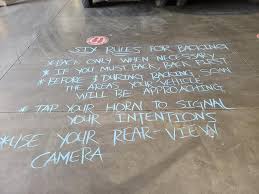 SIX RULES FOR BACKING
* BACK ONLY WHEN NECESSARY
* IF YOU MUST BACK, BACK FIRST
* BEFORE & DURING BACKING SCAN
THE AREAS YOUR VEHICLE
WILL BE APPROACHING
* TAP YOUR HORN TO SIGNAL
YOUR INTENTIONS
* USE YOUR REAR-VIEW
CAMERA